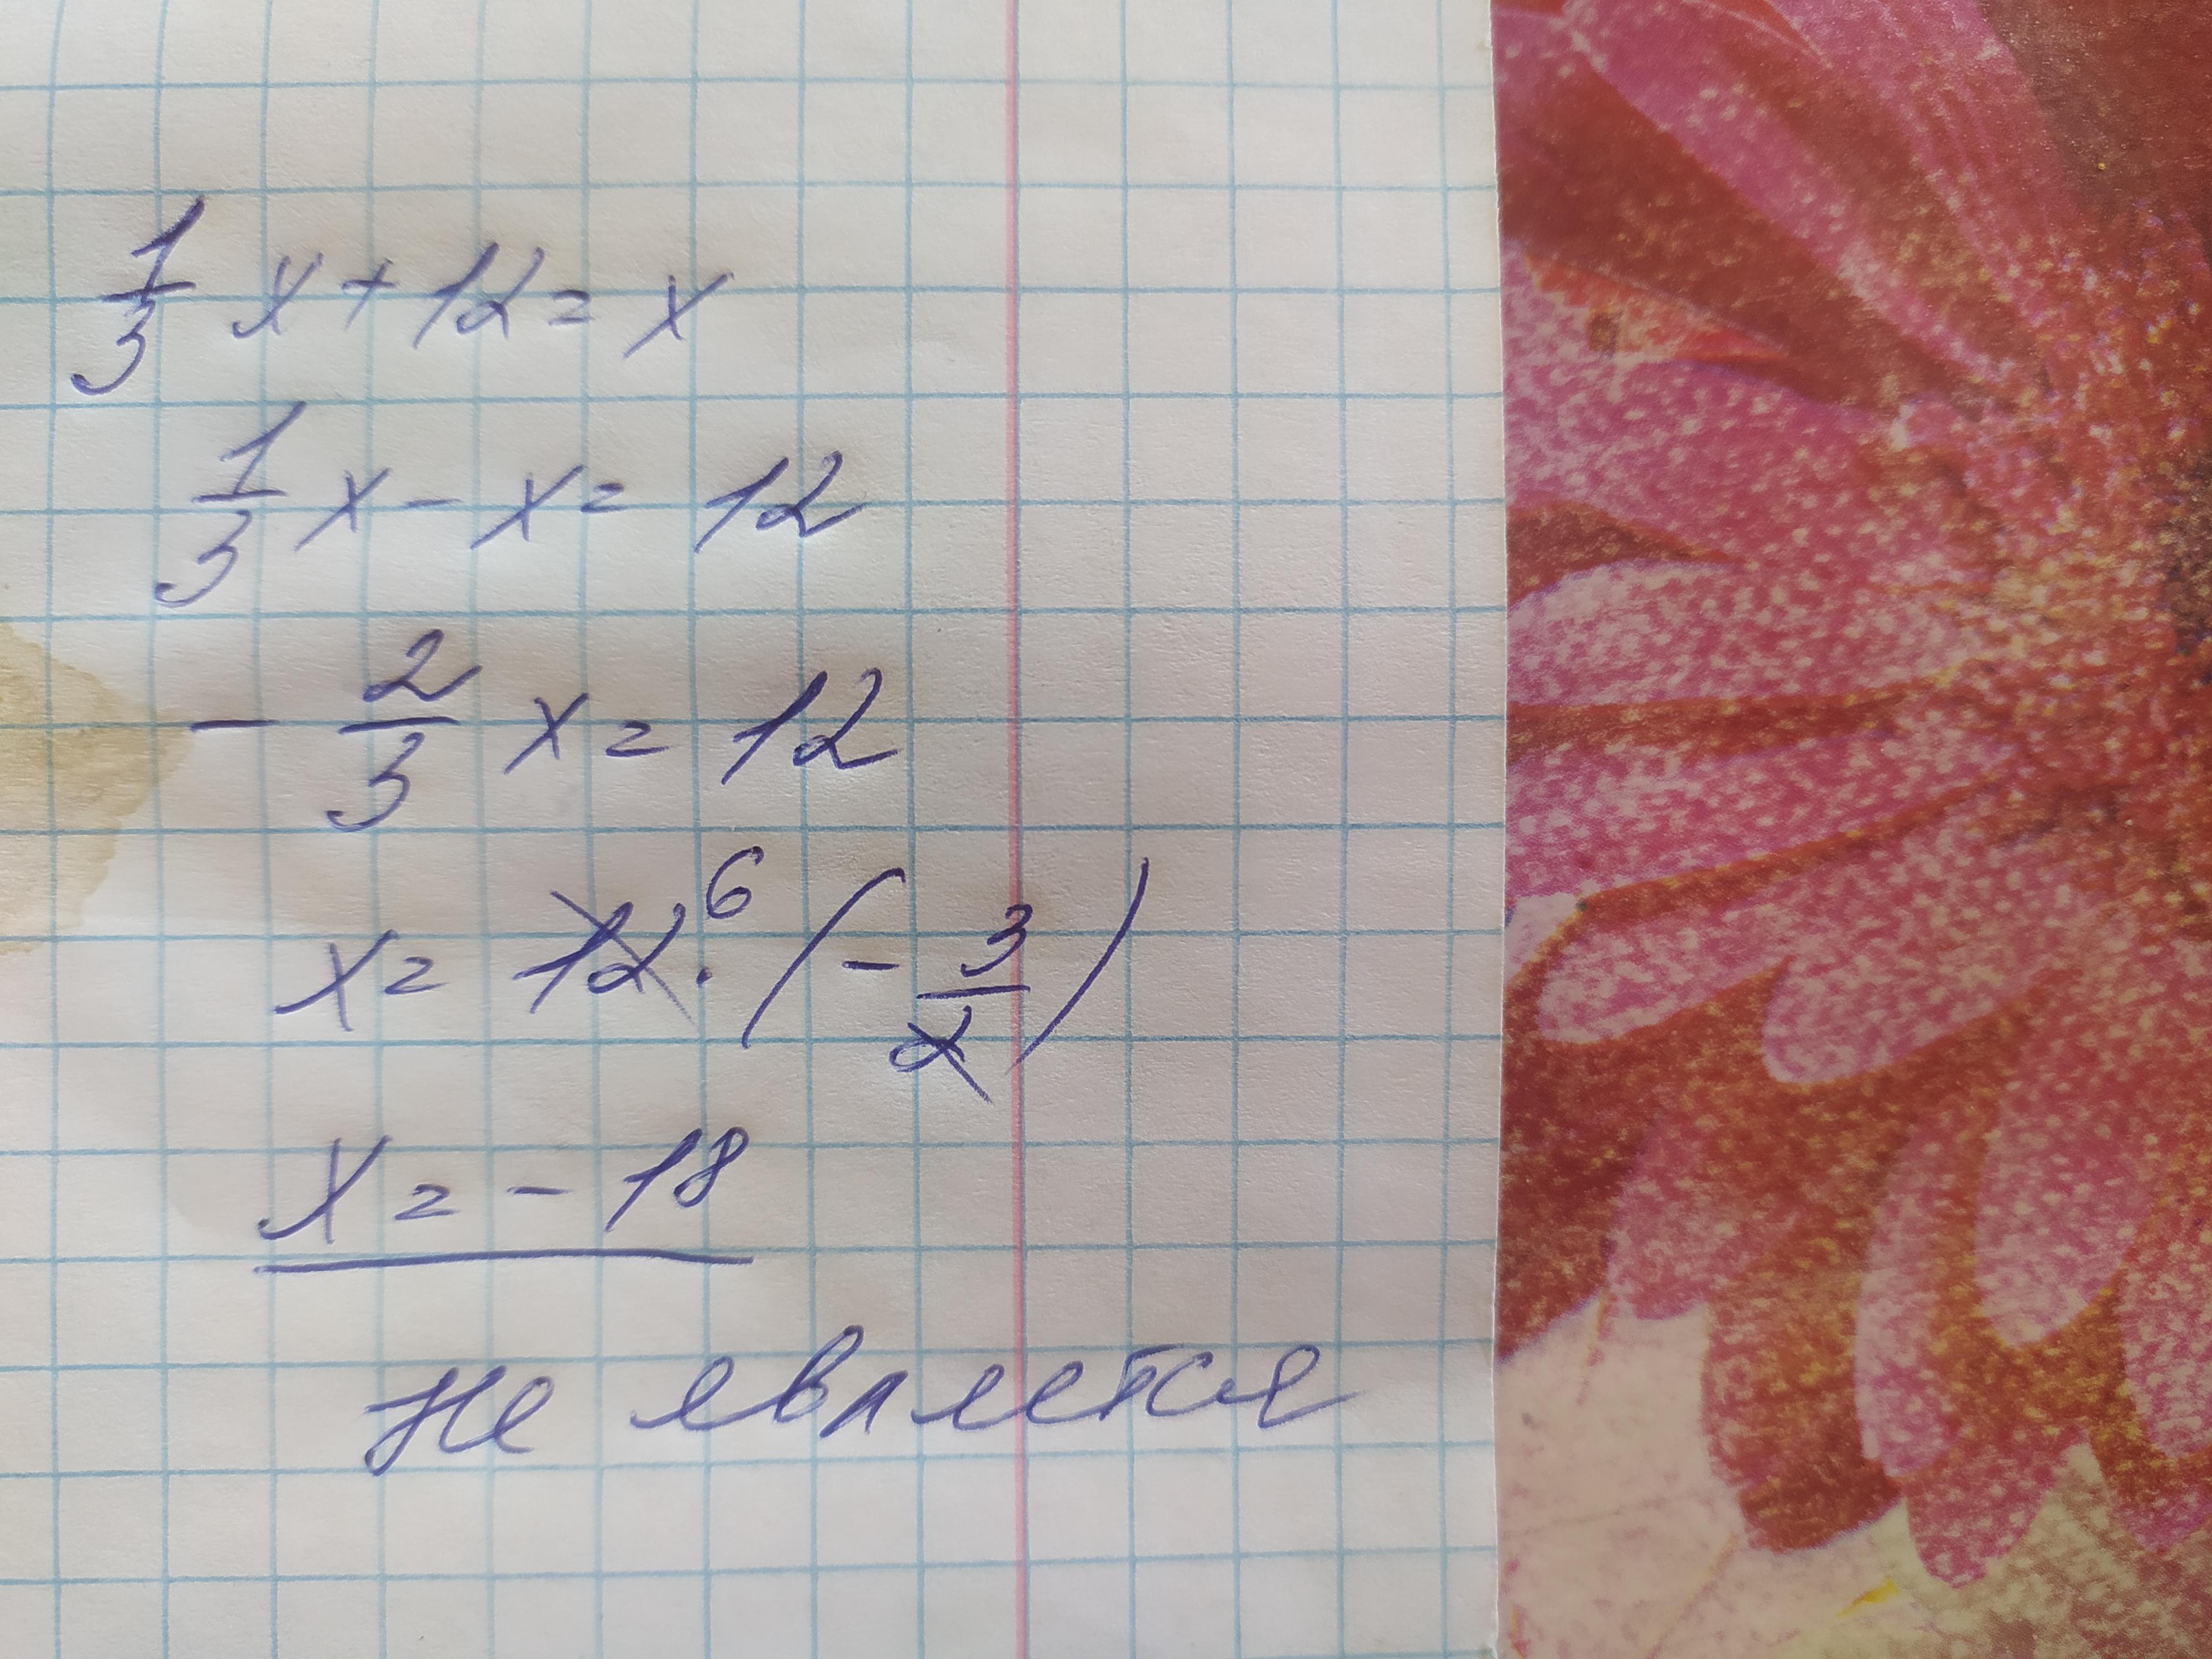 1/3 x + 12 = x
1/3 x - x = 12
- 2/3 x = 12
x = 12 6 · (- 3/2)
x = - 18
не является